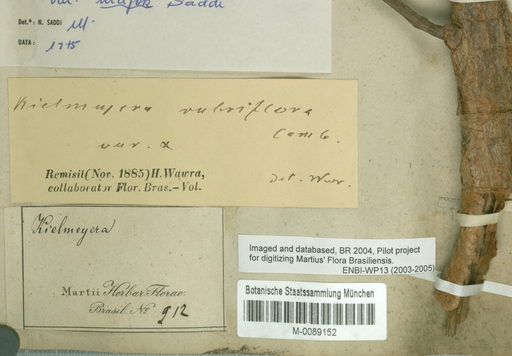 var. major Saddi
Det.ª: N. SADDI
DATA: 1975
Kielmeyera rubriflora
Camb.
var. α
Remisit (Nov. 1885) H. Wawra,
collaborator Flor. Bras.-Vol.
Det. Wwr.
Kielmeyera
Martii Herbar. Florae
Brasil. No 912
Imaged and databased, BR 2004, Pilot project
for digitizing Martius' Flora Brasiliensis.
ENBI-WP13 (2003-2005)
Botanische Staatssammlung München
M-0089152